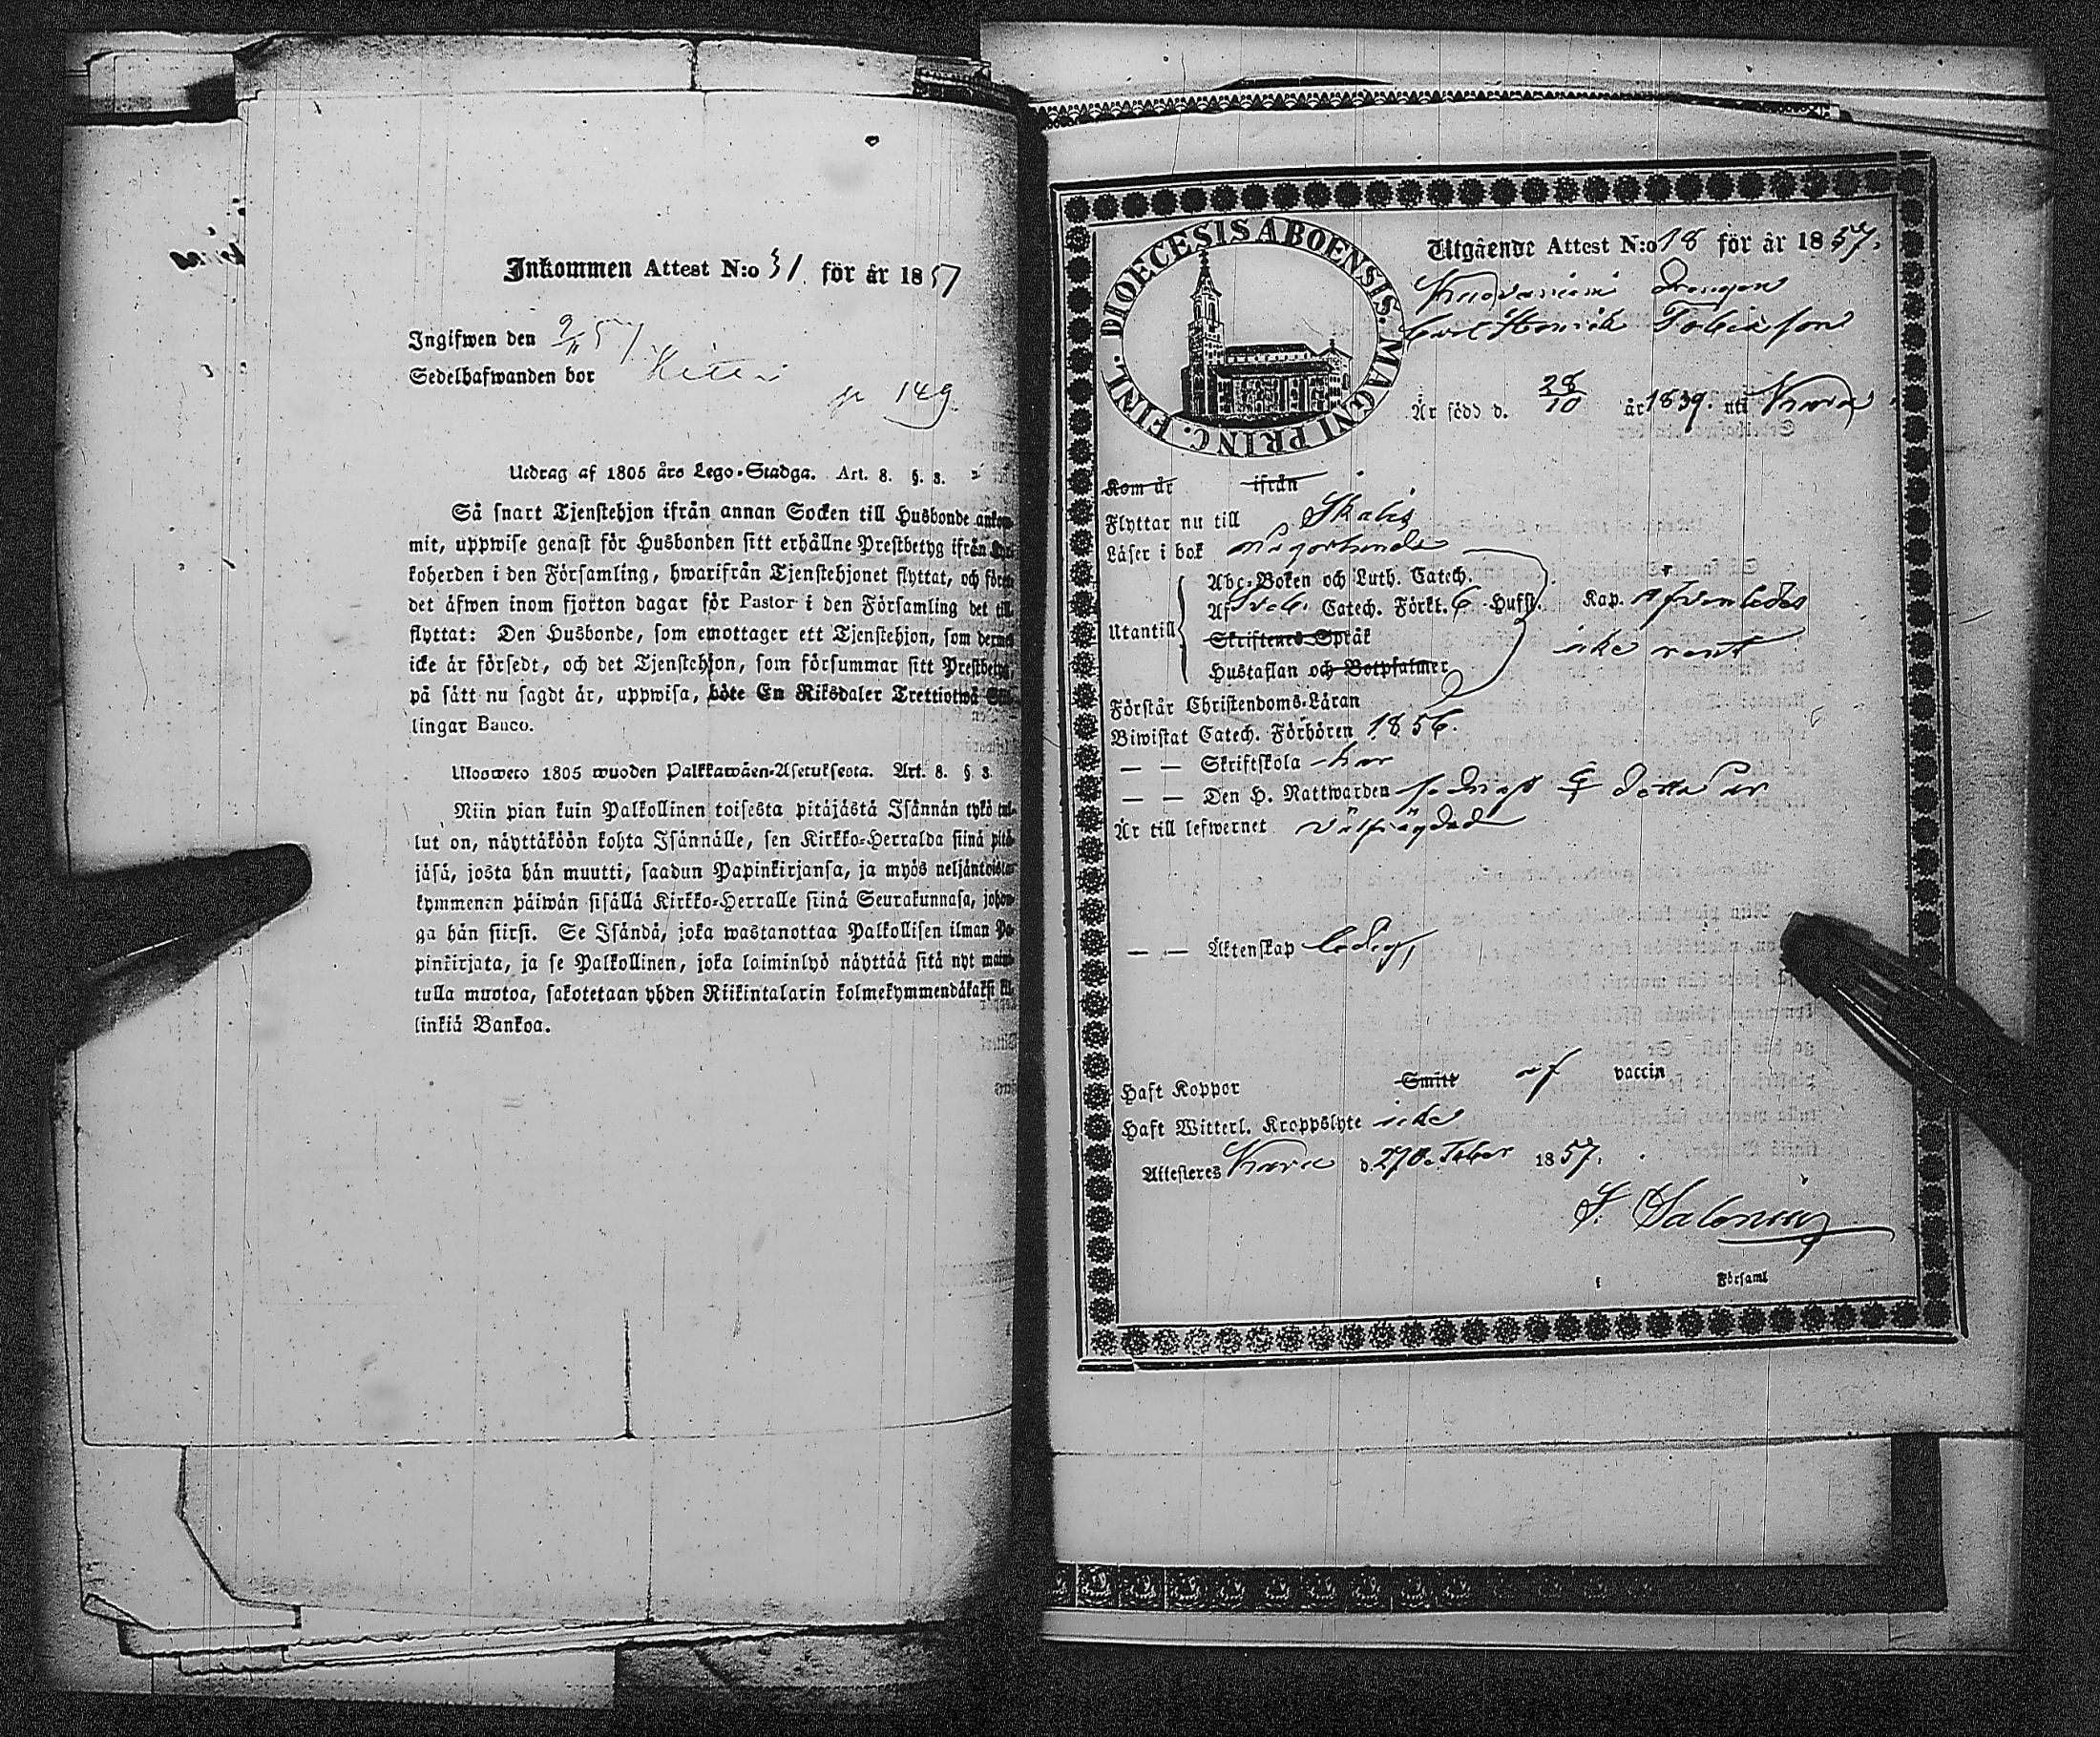 Inkommen Attest N:o 31. för år 1857
Ingifwen den 9/11 57.
Sedelhafwanden bor
p 149.
Utdrag af 1805 års Lego-Stadga. Art. 8. §. 3.
Så snart Tjenstehjon ifrån annan Socken till Husbonde ankom-
mit, uppwise genast för Husbonden sitt erhållne Prestbetyg ifrån
koherden i den Församling, hwarifrån Tjenstehjonet flyttat, och
det äfwen inom fjorton dagar för Pastor i den Församling det till
flyttat: Den Husbonde, som emottager ett Tjenstehjon, som dermed
icke är försedt, och det Tjenstehjon, som försummar sitt Prestbetyg,
på sätt nu sagdt är, uppwisa, böte En Riksdaler Trettiotwå
lingar Banco.
Ulosweto 1805 wuoden Palkkawäen-Asetuksesta. Art. 8. § 3
Niin pian kuin Palkollinen toisesta pitäjästä Isännän tykö tul-
lut on, näyttäköön kohta Isännälle, sen Kirkko-Herralda siinä pitä-
jäsä, josta hän muutti, saadun Papinkirjansa, ja myös neljäntoista-
kymmenen päiwän sisällä Kirkko-Herralle siinä Seurakunnasa, johon-
ga hän siirsi. Se Isändä, joka wastanottaa Palkollisen ilman Pa-
pinkirjata, ja se Palkollinen, joka laiminlyö näyttää sitä nyt
tulla muotoa, sakotetaan yhden Riikintalarin kolmekymmendäkaksi
linkiä Bankoa.
DIOECESIS ABOENSIS. MAGNI PRINC. FINL.
Utgående Attest N:o 18 för år 1857.
Drengen
Carl Henrik Tobiasson
Är född d. 28/10 år 1839. uti
Kom år ifrån
Flyttar nu till
Läser i bok någorlunda
Abc-Boken och Luth. Catech.
Af Catech. Förkl. 6 Hufst. Kap. Äfvenledes
Utantill
Skriftenes Språk icke rent
Hustaflan och Botpsalmer
Förstår Christendoms-Läran
Biwistat Catech. Förhören 1856.
— — Skriftskola har
— — Den H. Nattwarden detta år
Är till lefwernet välfrägdad
— — Äktenskap ledig,
Haft Koppor Smitt af vaccin
Haft Witterl. Kroppslyte icke
Attesteres d. 27 October 1857.
F. Salonius
i Församl